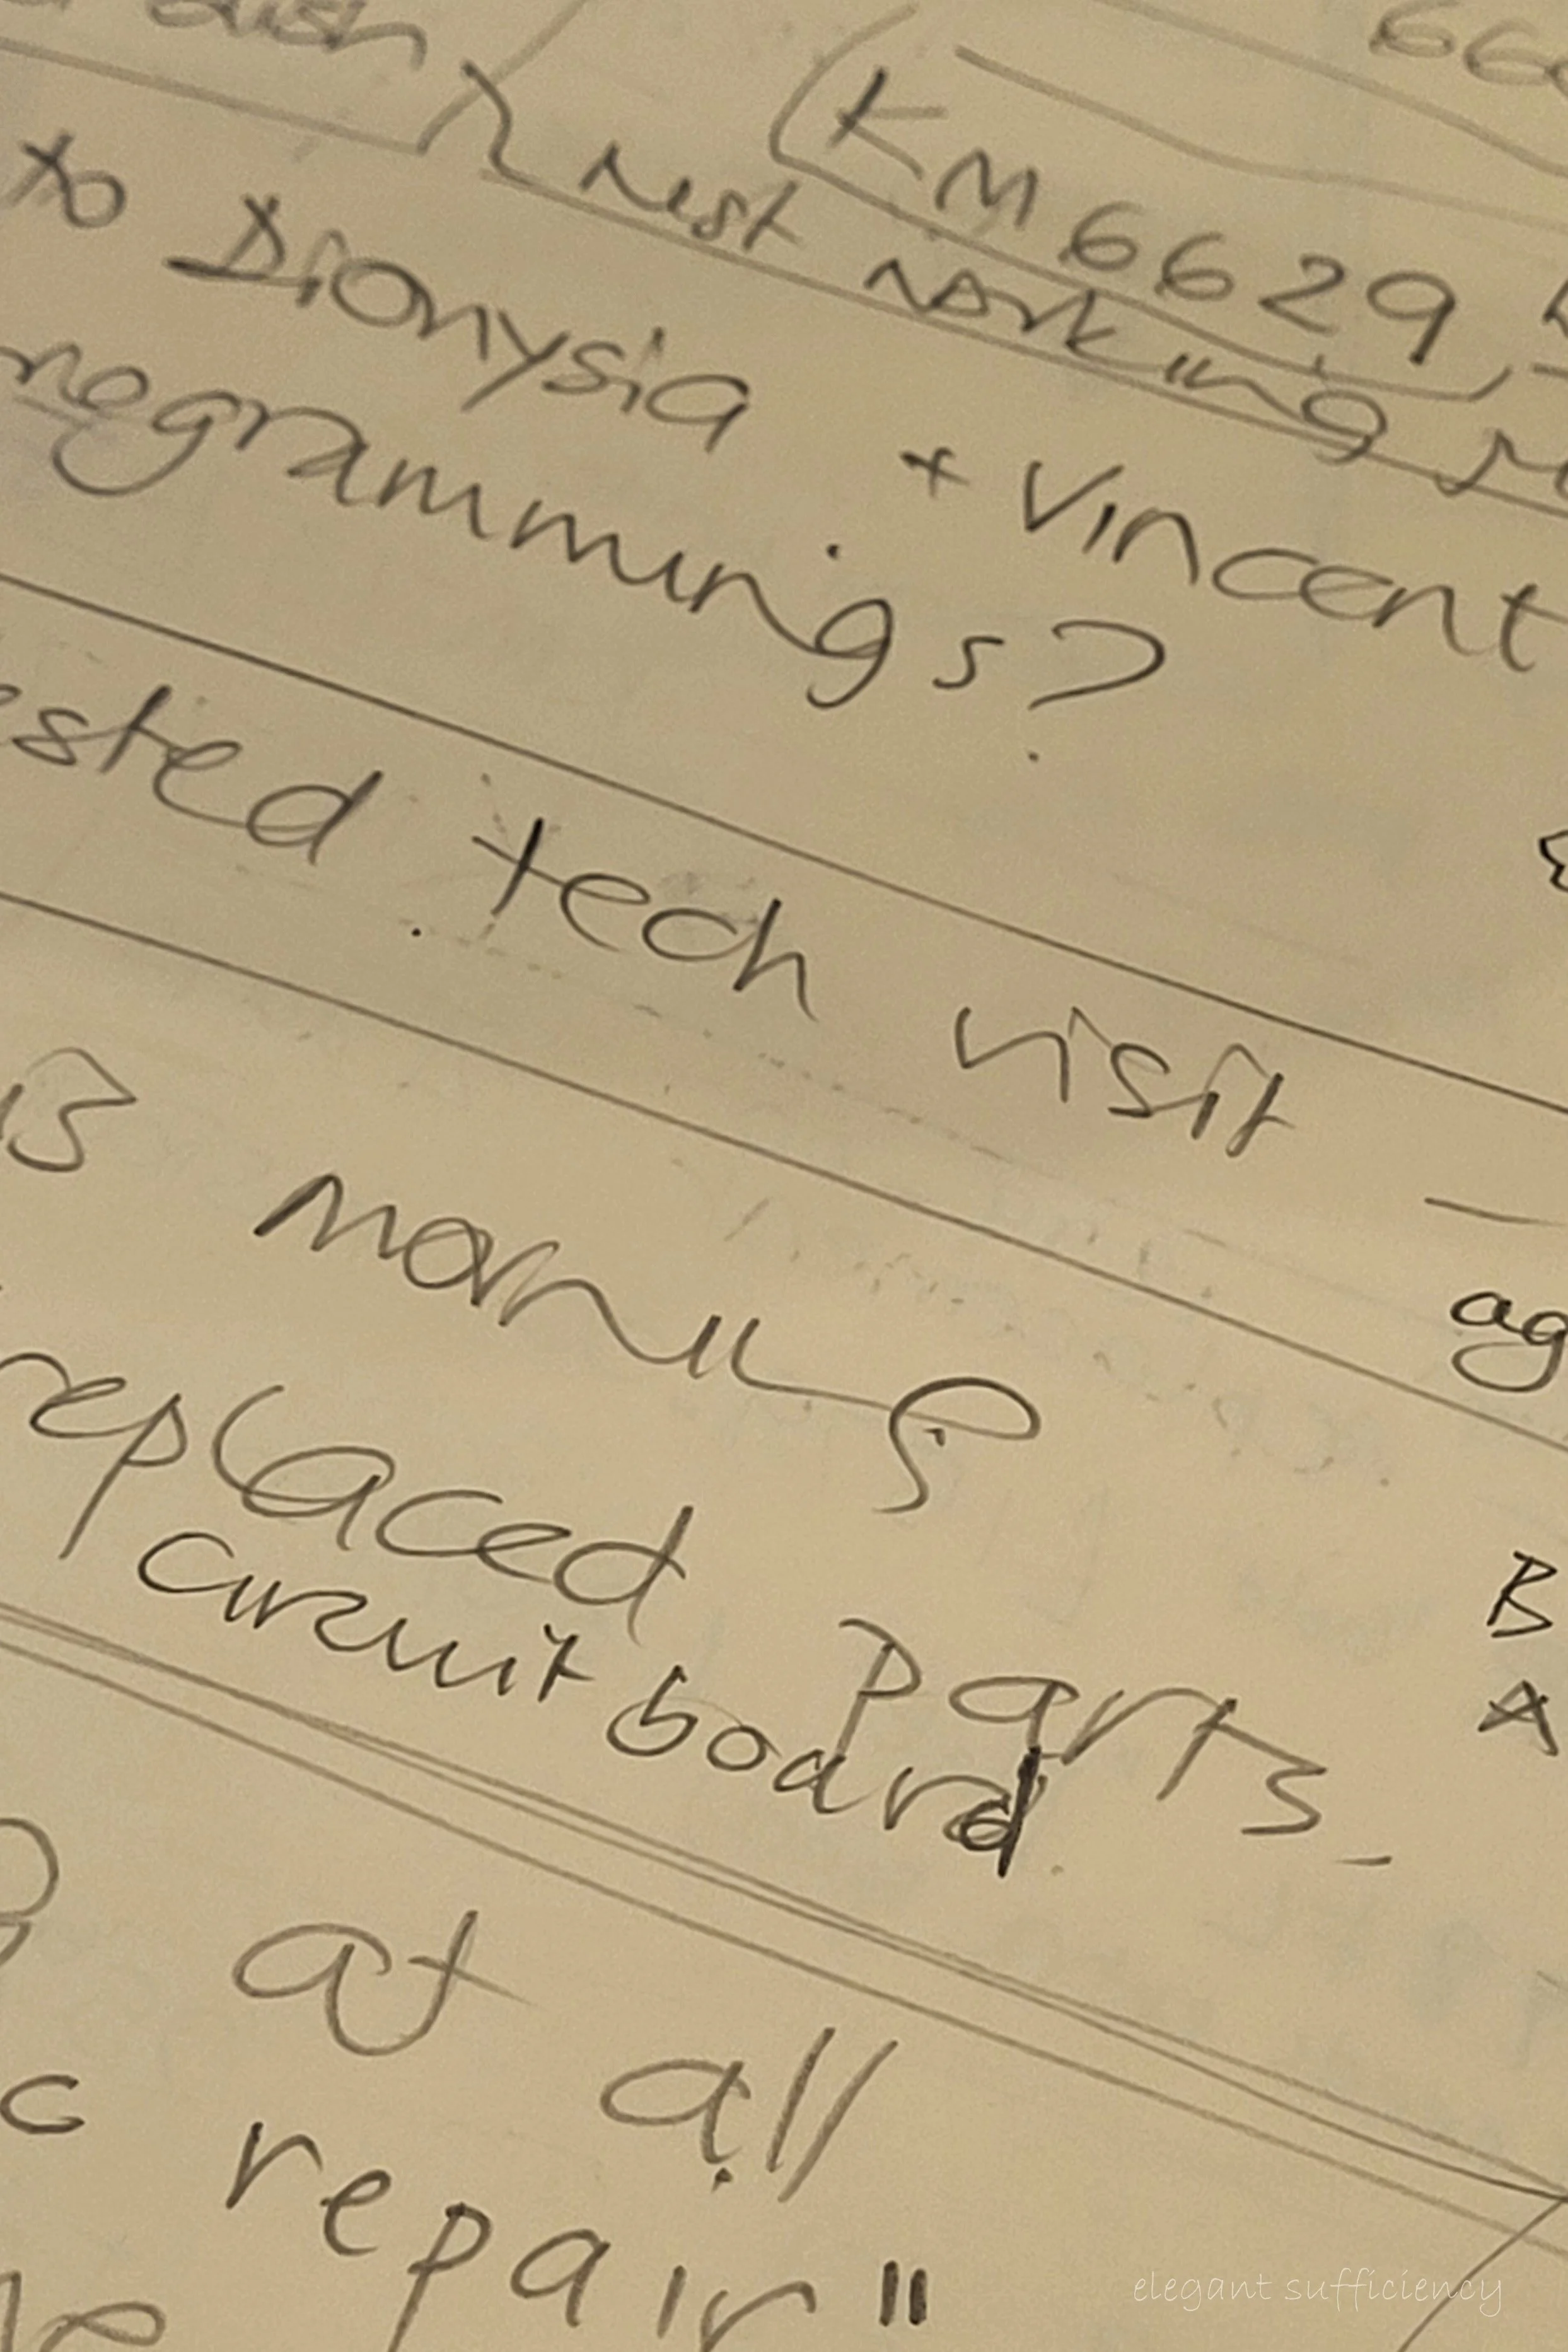 66
(KM6629,
rest working
to Dionysia + Vincent
programmings?
ested tech visit —
is morning
ag
replaced parts -
circuit board
B
A
at all
c repair"
elegant sufficiency